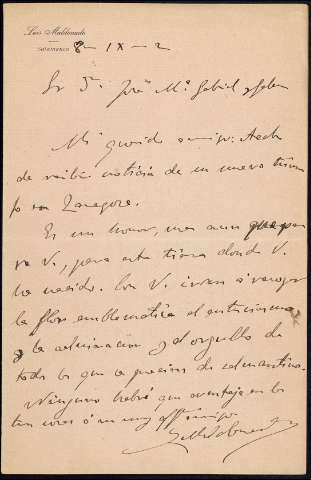 Luis Maldonado
SALAMANCA
8- IX - 2
Sr Dn José Mª Gabriel y Galan
Mi querido amigo: Acabo
de recibir noticia de un nuevo triun
fo en Zaragoza.
Es un honor, mas aun que pa
ra V., para esta tierra donde V.
ha nacido. Con V. iran á recoger
la flor emblematica el entusiasmo
y la admiración y el orgullo de
todo lo que se precian de salmantino.
Ninguno habrá que aventaje en los
tan á su muy affº amigo
L Maldonado